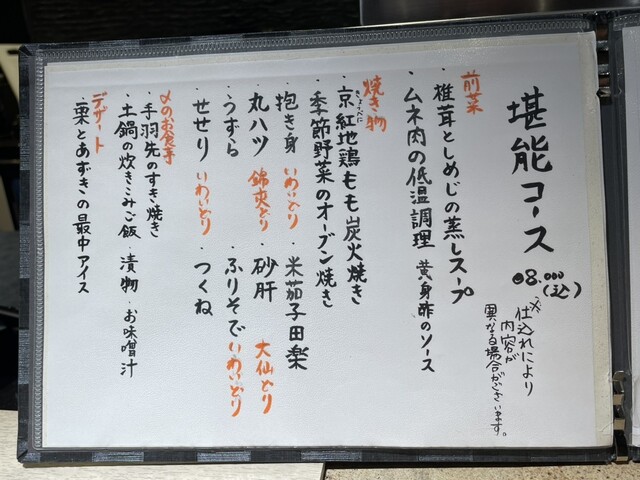 堪能コース
8.000(込)
※仕込れにより
内容が
異なる場合がございます。
前菜
・椎茸としめじの蒸しスープ
・ムネ肉の低温調理 黄身酢のソース
焼き物
・京紅地鶏もも炭火焼き
・季節野菜のオーブン焼き
・抱き身 いわいどり ・米茄子田楽
・丸ハツ 錦爽どり ・砂肝 大仙どり
・うずら ・ふりそで いわいどり
・せせり いわいどり ・つくね
〆のお食事
・手羽先のすき焼き
・土鍋の炊きこみご飯 ・漬物 ・お味噌汁
デザート
・栗とあずきの最中アイス